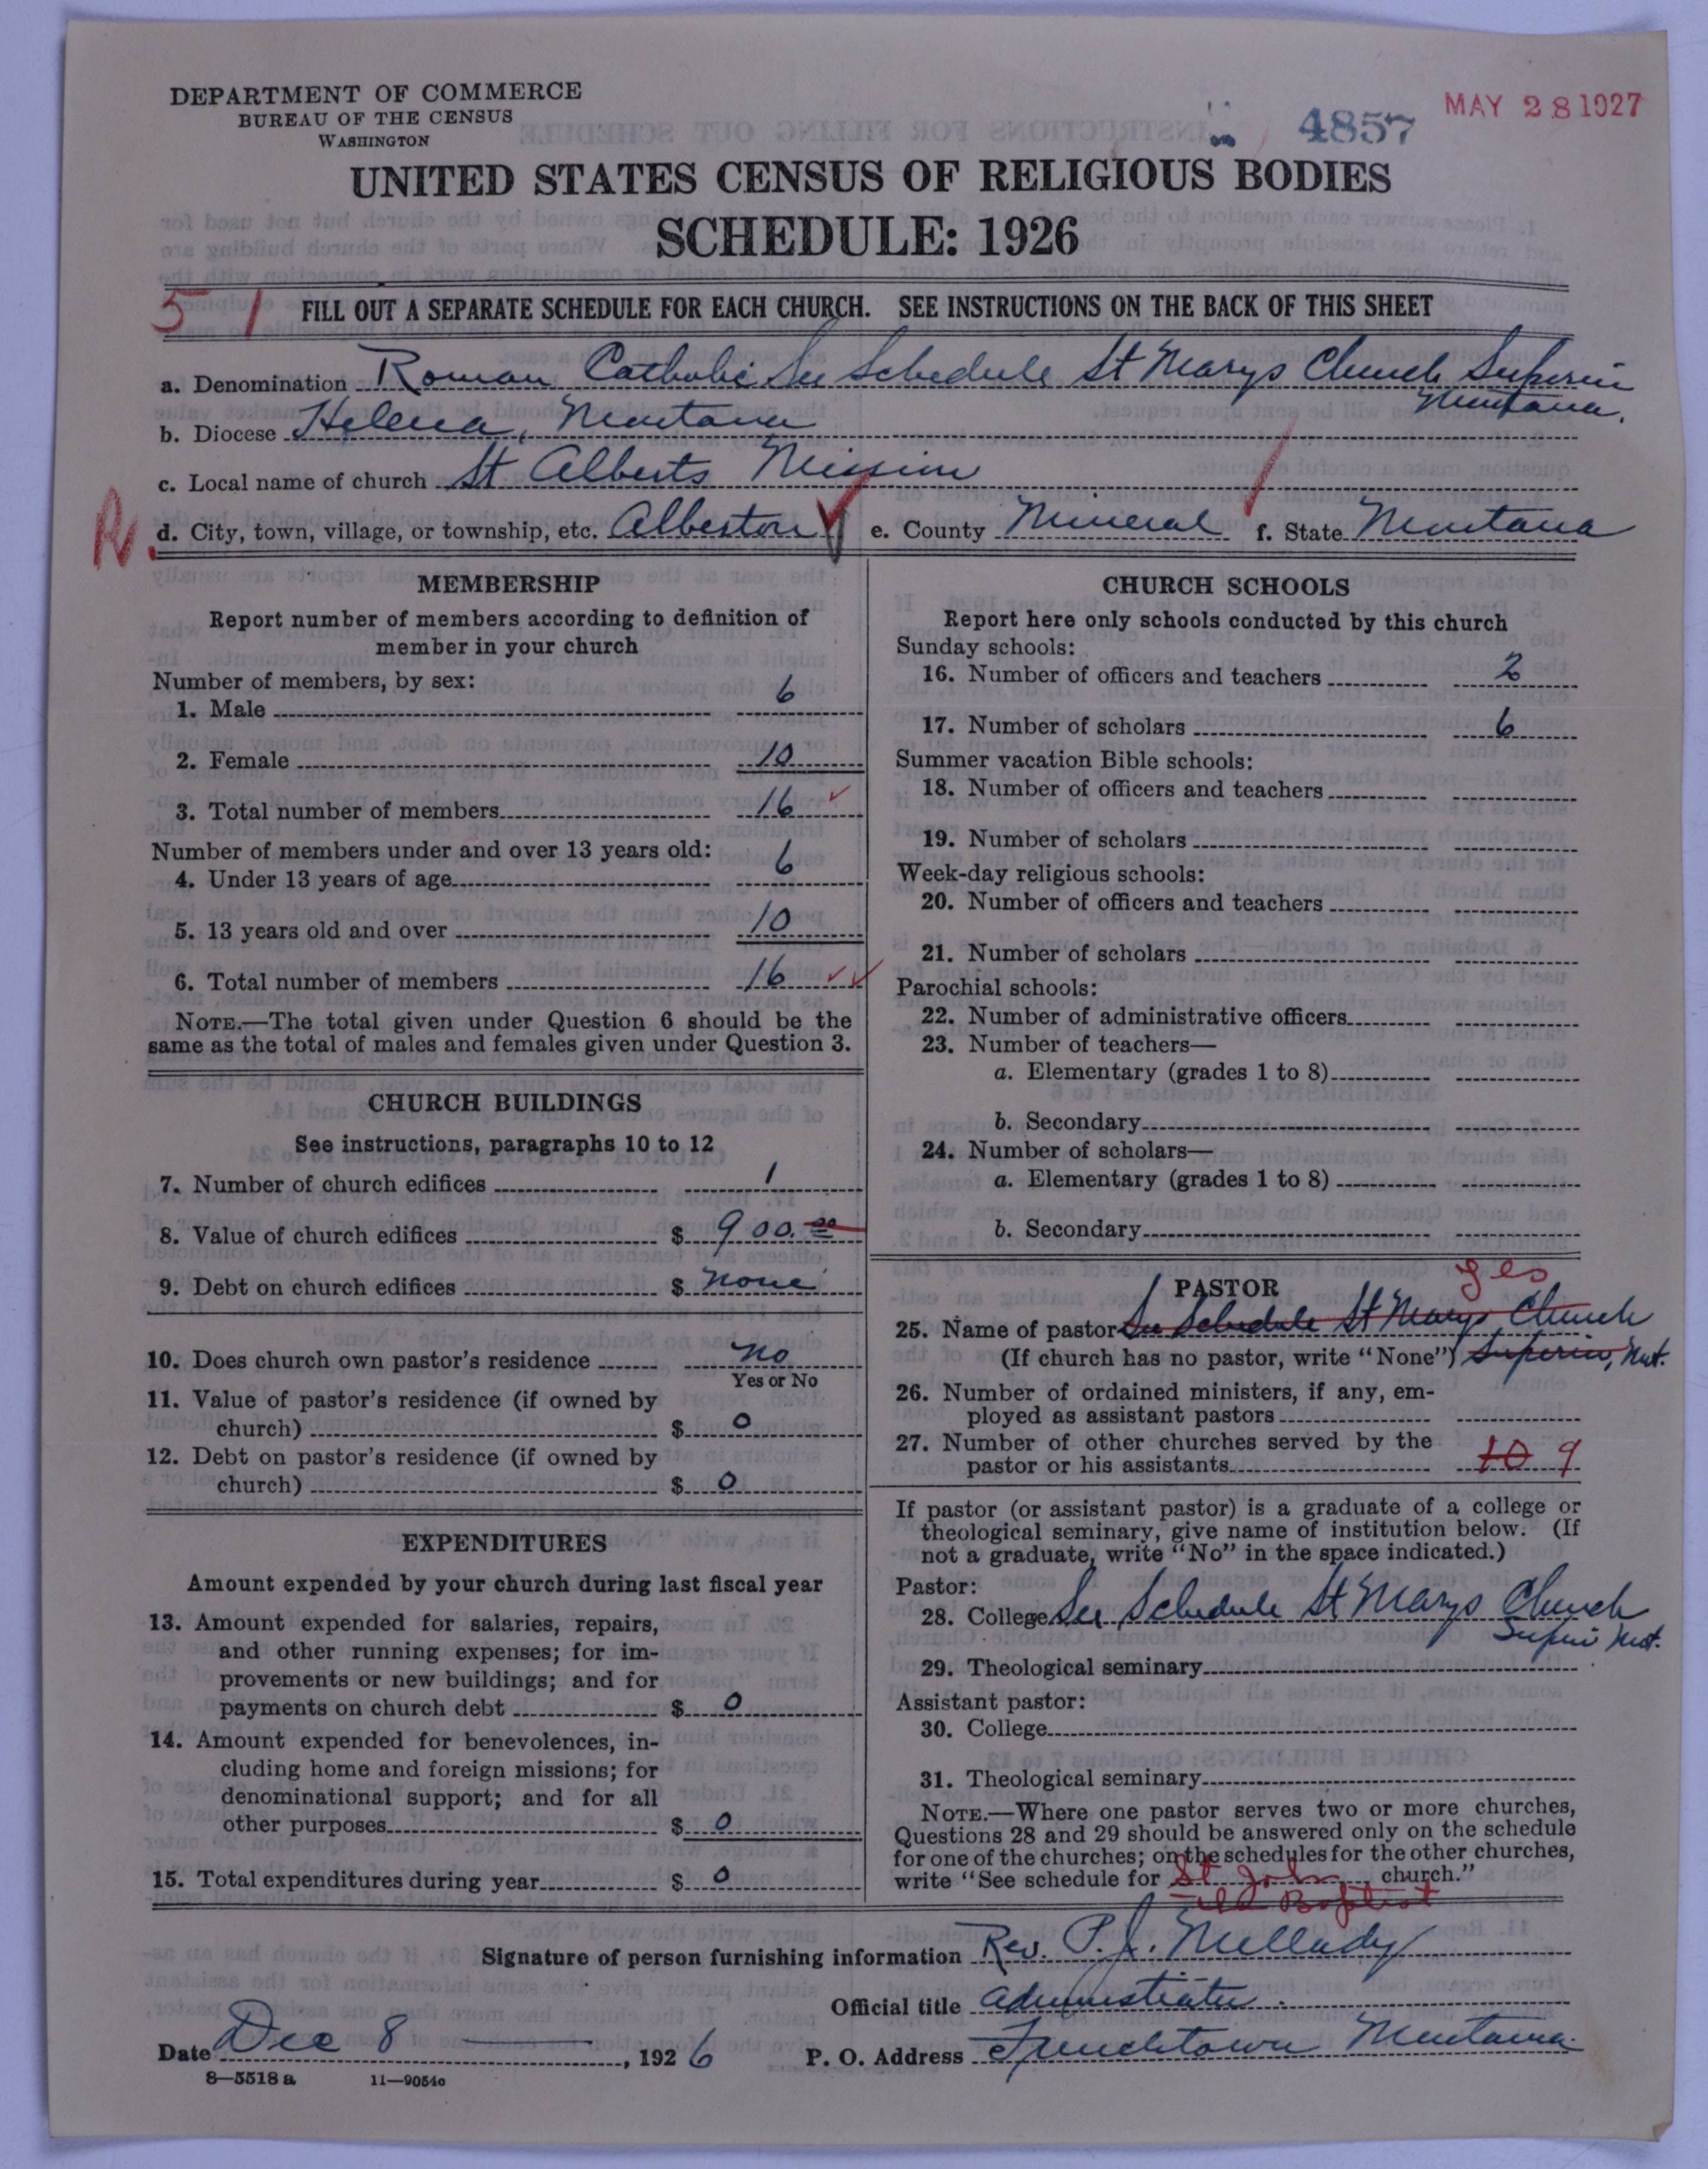 DEPARTMENT OF COMMERCE
BUREAU OF THE CENSUS
WASHINGTON
4857
MAY 28 1927
UNITED STATES CENSUS OF RELIGIOUS BODIES
SCHEDULE: 1926
5 1
FILL OUT A SEPARATE SCHEDULE FOR EACH CHURCH. SEE INSTRUCTIONS ON THE BACK OF THIS SHEET
a. Denomination Roman Catholic See Schedule St Marys Church Superior
Montana.
b. Diocese Helena, Montana
c. Local name of church St Alberts Mission
R. d. City, town, village, or township, etc. Alberton e. County Mineral f. State Montana
MEMBERSHIP
Report number of members according to definition of
member in your church
Number of members, by sex:
1. Male 6
2. Female 10
3. Total number of members 16
Number of members under and over 13 years old:
4. Under 13 years of age 6
5. 13 years old and over 10
6. Total number of members 16
NOTE.—The total given under Question 6 should be the
same as the total of males and females given under Question 3.
CHURCH BUILDINGS
See instructions, paragraphs 10 to 12
7. Number of church edifices 1
8. Value of church edifices $ 900.00
9. Debt on church edifices $ none
10. Does church own pastor's residence no
Yes or No
11. Value of pastor's residence (if owned by
church) $ 0
12. Debt on pastor's residence (if owned by
church) $ 0
EXPENDITURES
Amount expended by your church during last fiscal year
13. Amount expended for salaries, repairs,
and other running expenses; for im-
provements or new buildings; and for
payments on church debt $ 0
14. Amount expended for benevolences, in-
cluding home and foreign missions; for
denominational support; and for all
other purposes $ 0
15. Total expenditures during year $ 0
CHURCH SCHOOLS
Report here only schools conducted by this church
Sunday schools:
16. Number of officers and teachers 2
17. Number of scholars 6
Summer vacation Bible schools:
18. Number of officers and teachers
19. Number of scholars
Week-day religious schools:
20. Number of officers and teachers
21. Number of scholars
Parochial schools:
22. Number of administrative officers
23. Number of teachers—
a. Elementary (grades 1 to 8)
b. Secondary
24. Number of scholars—
a. Elementary (grades 1 to 8)
b. Secondary
PASTOR yes
25. Name of pastor See Schedule St Marys Church
(If church has no pastor, write "None") Superior, Mnt.
26. Number of ordained ministers, if any, em-
ployed as assistant pastors
27. Number of other churches served by the
pastor or his assistants 10 9
If pastor (or assistant pastor) is a graduate of a college or
theological seminary, give name of institution below. (If
not a graduate, write "No" in the space indicated.)
Pastor:
28. College See Schedule St Marys Church
Superior Mnt.
29. Theological seminary
Assistant pastor:
30. College
31. Theological seminary
NOTE.—Where one pastor serves two or more churches,
Questions 28 and 29 should be answered only on the schedule
for one of the churches; on the schedules for the other churches,
write "See schedule for St. John church."
Baptist
Signature of person furnishing information Rev. P. J. Mellady
Official title Administrator
Date Dec 8, 1926 P. O. Address Frenchtown Montana.
8—5518 a 11—9054o